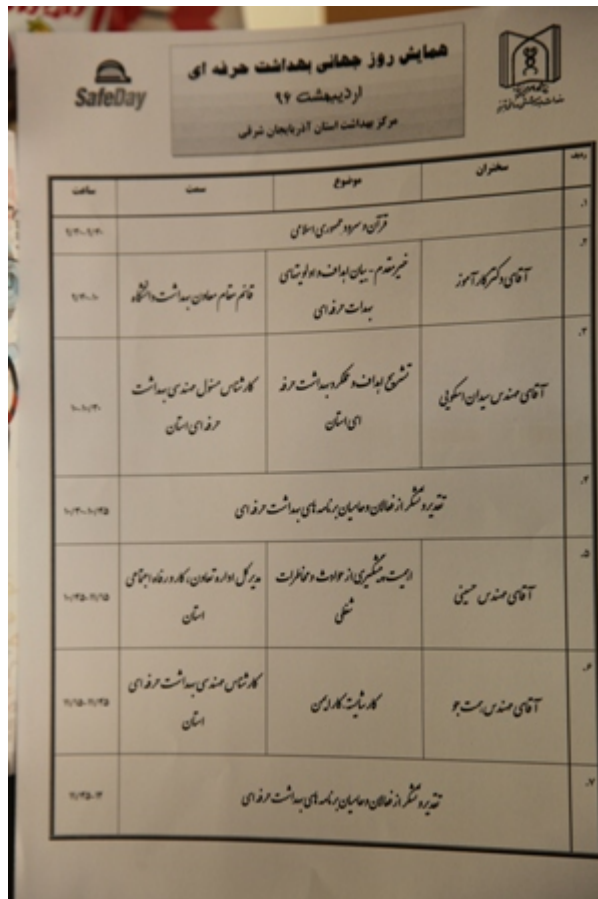 SafeDay
همایش روز جهانی بهداشت حرفه ای
اردیبهشت ۹۶
مرکز بهداشت استان آذربایجان شرقی
ردیف سخنران موضوع سمت ساعت
۱. قرآن و سرود جمهوری اسلامی ۹/۳۰-۹/۴۰
۲. آقای دکتر کارآموز
خیرمقدم - بیان اهداف و اولویتهای
بهداشت حرفه ای
قائم مقام معاون بهداشت دانشگاه
۳. آقای مهندس سیدان اسکویی
تشریح اهداف و عملکرد بهداشت حرفه
ای استان
کارشناس مسئول مهندسی بهداشت
حرفه ای استان
۱۰-۱۰/۳۰
۴. تقدیر و تشکر از فعالان و حامیان برنامه های بهداشت حرفه ای ۱۰/۳۰-۱۰/۴۵
۵. آقای مهندس حسینی
اهمیت پیشگیری از حوادث و مخاطرات
شغلی
مدیر کل اداره تعاون، کار و رفاه اجتماعی
استان
۱۰/۴۵-۱۱/۱۵
۶. آقای مهندس
کار شایسته، کار ایمن
کارشناس مهندسی بهداشت حرفه ای
استان
۱۱/۱۵-۱۱/۴۵
۷. تقدیر و تشکر از فعالان و حامیان برنامه های بهداشت حرفه ای ۱۱/۴۵-۱۲